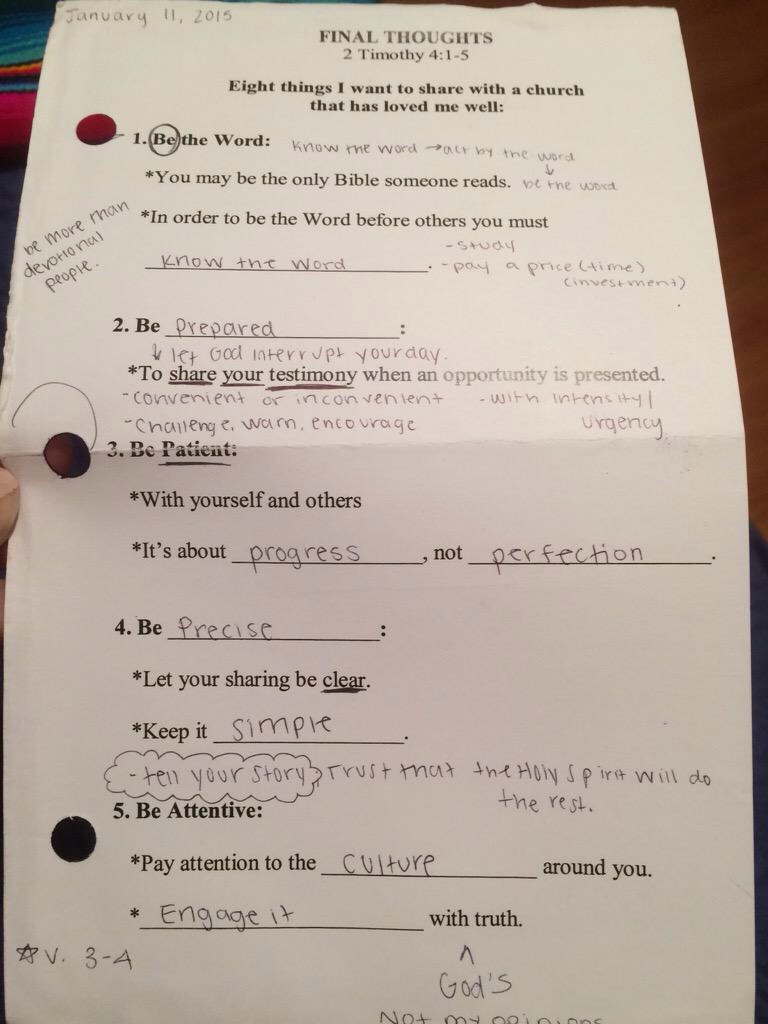 January 11, 2015
FINAL THOUGHTS
2 Timothy 4:1-5
Eight things I want to share with a church
that has loved me well:
1. Be the Word: Know the word → act by the word
↓
*You may be the only Bible someone reads. be the word
*In order to be the Word before others you must
be more than
devotional
people.
- study
Know the word. - pay a price (time)
(investment)
2. Be Prepared:
↓ let God interrupt your day.
*To share your testimony when an opportunity is presented.
- convenient or inconvenient - with intensity/
- Challenge, warn, encourage urgency
3. Be Patient:
*With yourself and others
*It's about progress, not perfection.
4. Be Precise:
*Let your sharing be clear.
*Keep it simple.
- tell your story Trust that the Holy Spirit will do
the rest.
5. Be Attentive:
*Pay attention to the culture around you.
* Engage it with truth.
☆ v. 3-4 ^
God's
Not my opinions